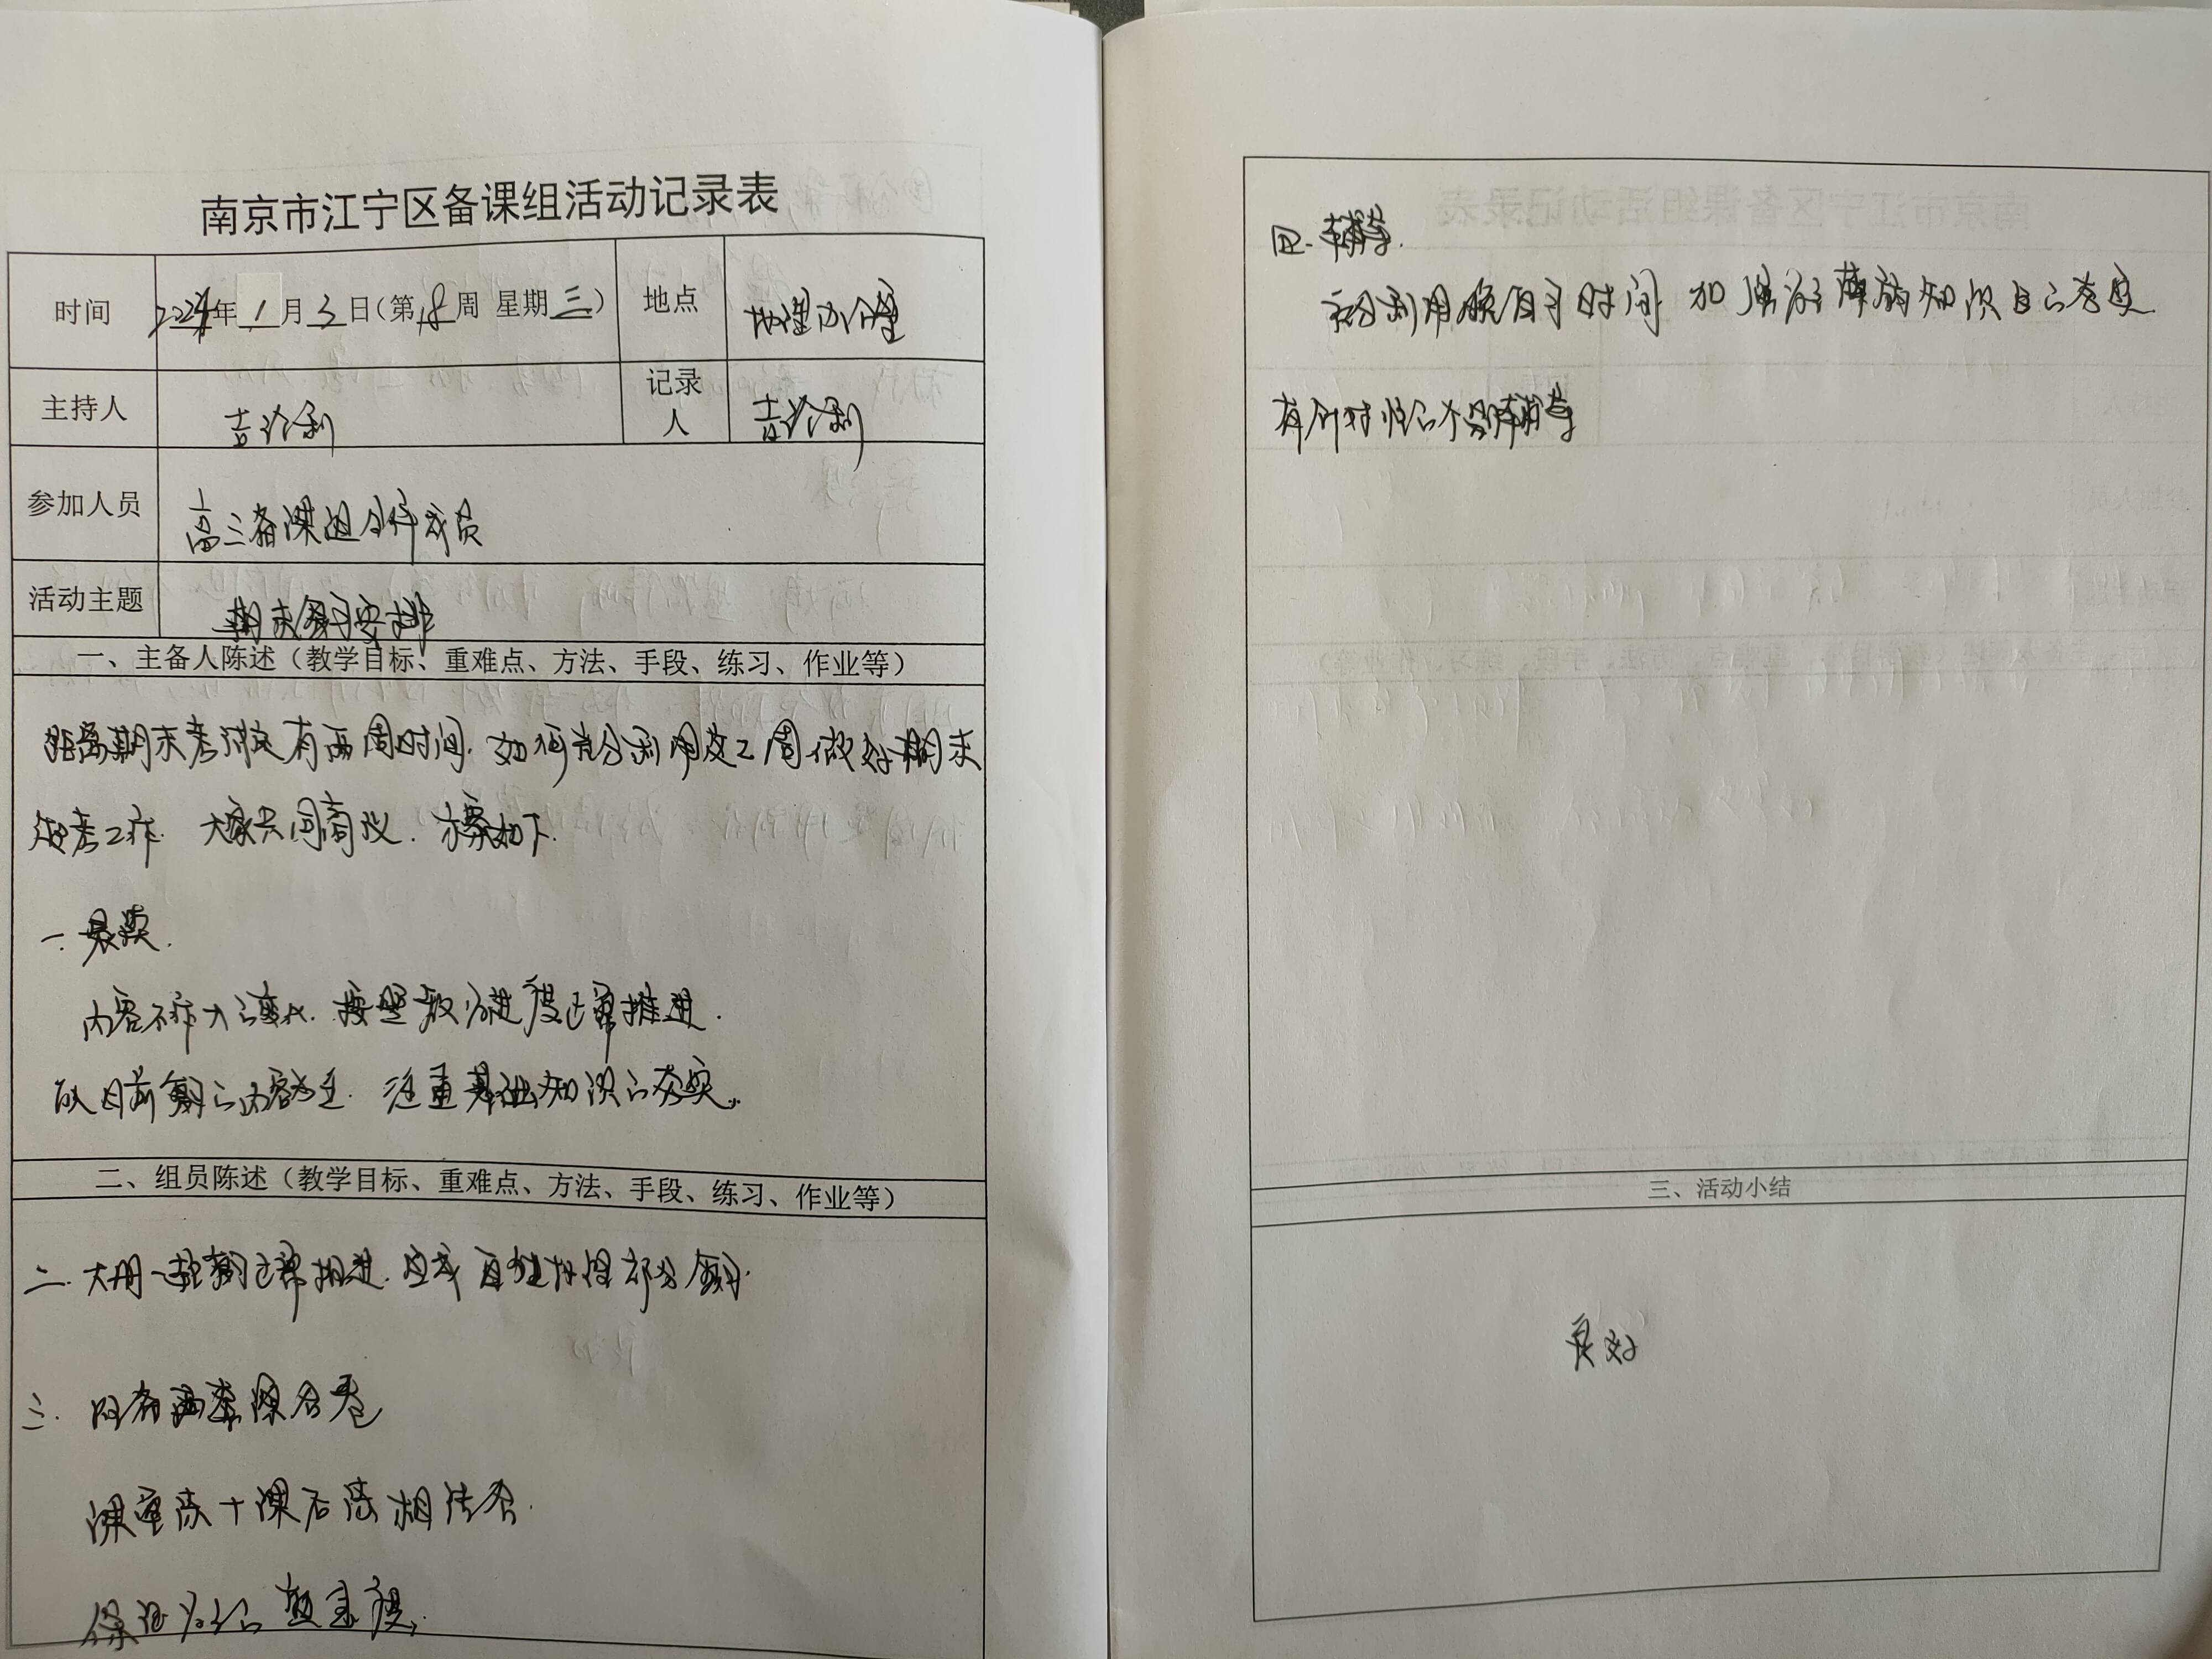 南京市江宁区备课组活动记录表
时间 2024年1月3日(第18周 星期三) 地点 地理办公室
主持人 吉 利 记录人 吉 利
参加人员 高三备课组全体成员
活动主题 期末复习安排
一、主备人陈述（教学目标、重难点、方法、手段、练习、作业等）
距离期末考试还有两周时间. 如何充分利用这2周做好期末
迎考工作. 大家共同商议. 方案如下.
一.
内容不作大的变化. 按照 进度正常推进.
以目前复习的内容为主. 注重基础知识的夯实.
二、组员陈述（教学目标、重难点、方法、手段、练习、作业等）
二. 大册一轮复习正常推进. 完成 部分复习.
三. 两套综合卷
课堂练+课后练相结合.
保证 的 度.
四. 辅导.
充分利用晚自习时间 加 薄弱知识点的夯实.
有针对性的个别辅导
三、活动小结
良好